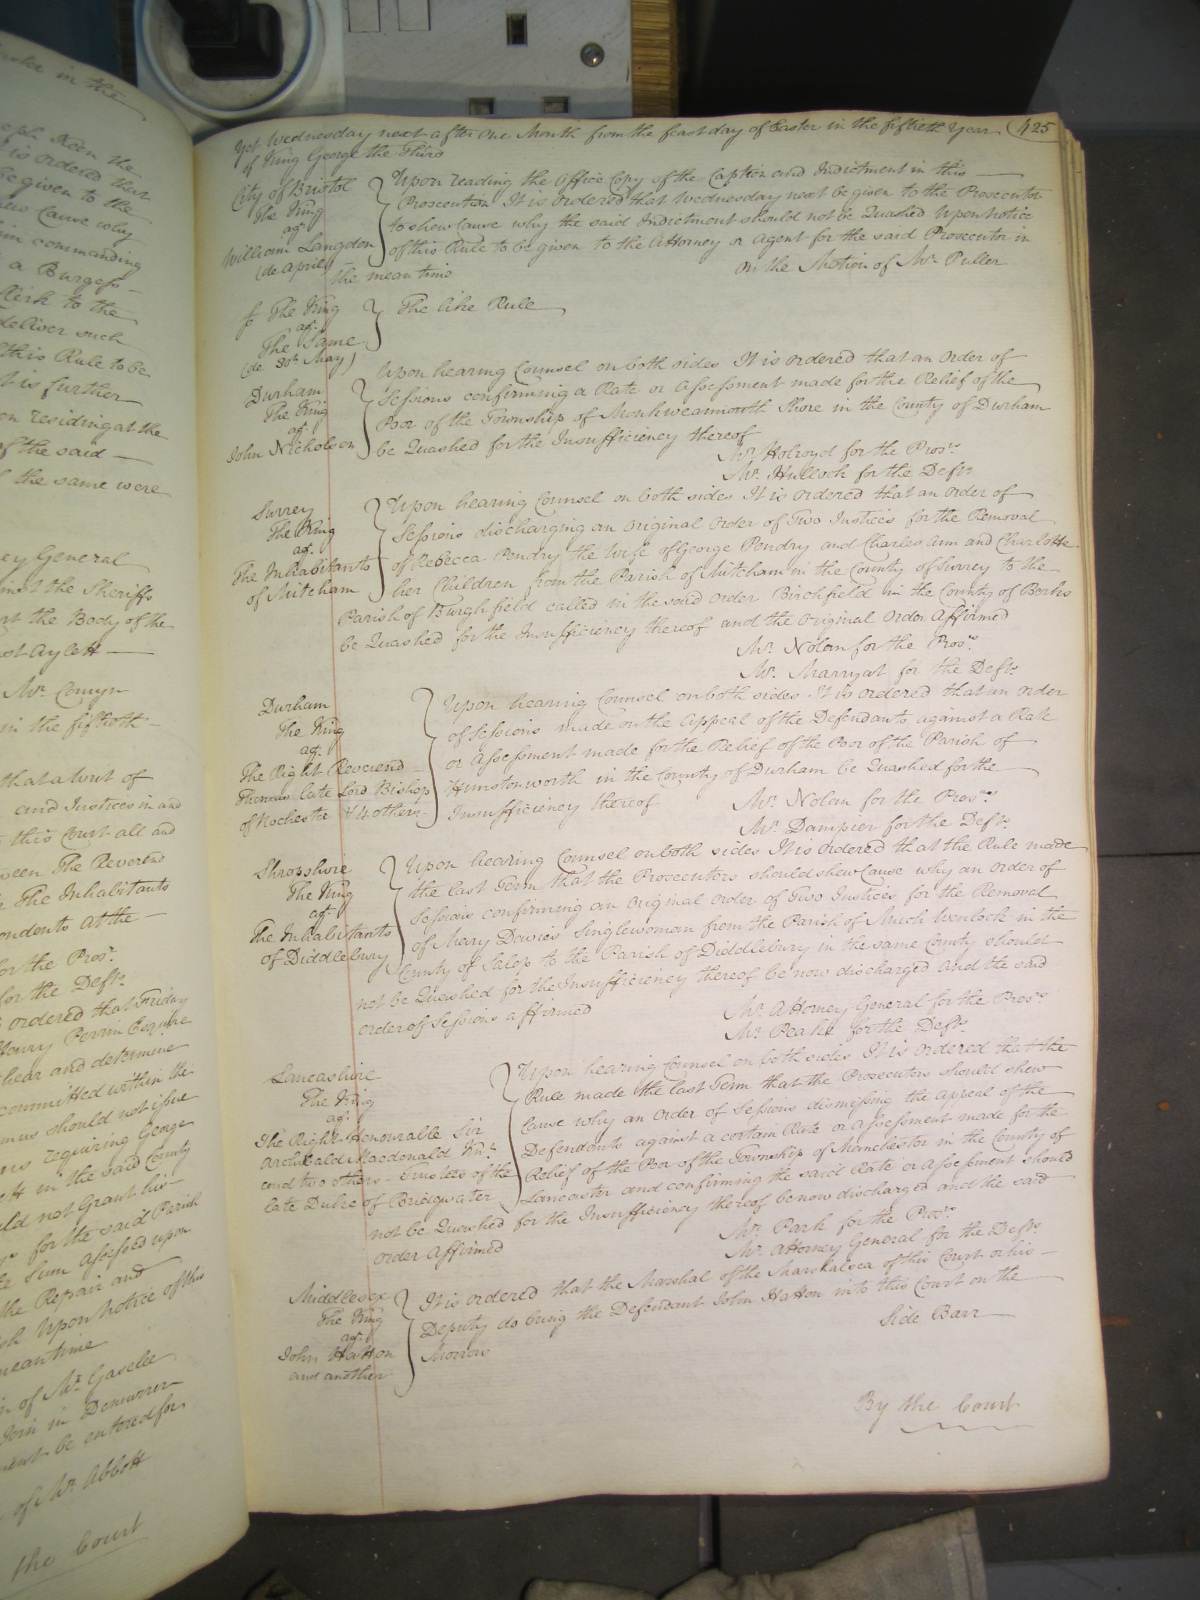 Yet Wednesday next after One Month from the feast day of Easter in the fiftieth Year 425
of King George the Third
City of Bristol
The King
agt
William Langdon
(de April)
Upon reading the Office Copy of the Caption and Indictment in this
Prosecution It is ordered that Wednesday next be given to the Prosecutor
to shew Cause why the said Indictment should not be Quashed Upon Notice
of this Rule to be given to the Attorney or Agent for the said Prosecutor in
the mean time
On the Motion of Mr. Puller
The King
agt.
The Same
(de 30th May)
The like Rule
Durham
The King
agt
John Nicholson
Upon hearing Counsel on both sides It is ordered that an Order of
Sessions confirming a Rate or Assessment made for the Relief of the
Poor of the Township of Monkwearmouth Shore in the County of Durham
be Quashed for the Insufficiency thereof
Mr. Holroyd for the Prosrs
Mr. Hullock for the Defts
Surrey
The King
agt
The Inhabitants
of Mitcham
Upon hearing Counsel on both sides It is ordered that an Order of
Sessions discharging an Original Order of Two Justices for the Removal
of Rebecca Pendry the Wife of George Pendry and Charles Ann and Charlotte
her Children from the Parish of Mitcham in the County of Surrey to the
Parish of Burghfield called in the said Order Birchfield in the County of Berks
be Quashed for the Insufficiency thereof and the Original Order Affirmed
Mr. Nolan for the Prosrs
Mr. Marryat for the Defts
Durham
The King
agt.
The Right Reverend
Thomas late Lord Bishop
of Rochester & 4 others
Upon hearing Counsel on both sides It is ordered that an Order
of Sessions made on the Appeal of the Defendants against a Rate
or Assessment made for the Relief of the Poor of the Parish of
Hunstonworth in the County of Durham be Quashed for the
Insufficiency thereof
Mr. Nolan for the Prosrs
Mr. Dampier for the Defts
Shropshire
The King
agt.
The Inhabitants
of Diddlebury
Upon hearing Counsel on both sides It is ordered that the Rule made
the last Term that the Prosecutors should shew Cause why an Order of
Sessions confirming an Original Order of Two Justices for the Removal
of Mary Davies Singlewoman from the Parish of Much Wenlock in the
County of Salop to the Parish of Diddlebury in the same County should
not be Quashed for the Insufficiency thereof be now discharged and the said
Order of Sessions affirmed
Mr. Attorney General for the Prosrs
Mr. Peake for the Defts
Lancashire
The King
agt.
The Right Honourable Sir
Archibald Macdonald Knt.
and two others Trustees of the
late Duke of Bridgwater
Upon hearing Counsel on both sides It is ordered that the
Rule made the last Term that the Prosecutors should shew
Cause why an Order of Sessions dismissing the Appeal of the
Defendants against a certain Rate or Assessment made for the
Relief of the Poor of the Township of Manchester in the County of
Lancaster and confirming the said Rate or Assessment should
not be Quashed for the Insufficiency thereof be now discharged and the said
Order Affirmed
Mr. Park for the Prosrs
Mr. Attorney General for the Defts
Middlesex
The King
agt.
John Hatton
and another
It is ordered that the Marshal of the Marshalsea of this Court or his
Deputy do bring the Defendant John Hatton into this Court on the
Morrow
Side Barr
By the Court